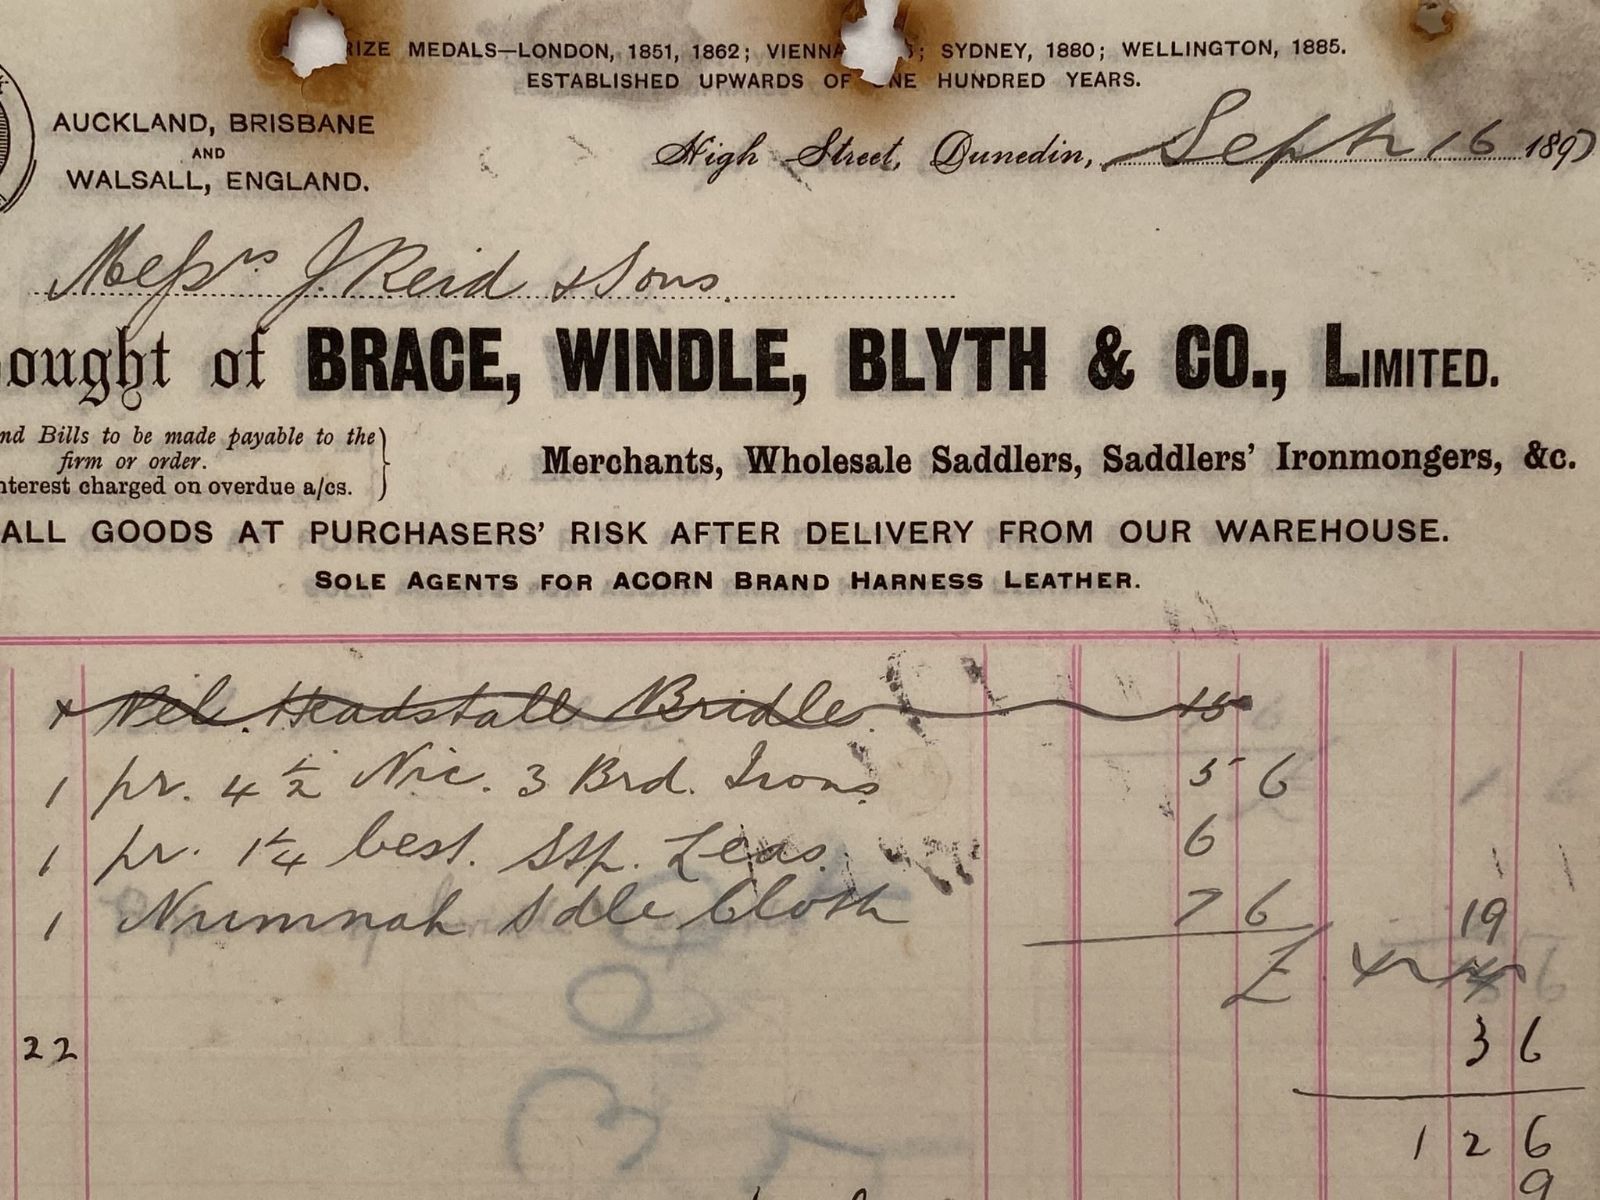 RIZE MEDALS—LONDON, 1851, 1862; VIENNA ; SYDNEY, 1880; WELLINGTON, 1885.
ESTABLISHED UPWARDS OF ONE HUNDRED YEARS.
AUCKLAND, BRISBANE
AND
WALSALL, ENGLAND.
High Street, Dunedin, Sept 16 1897
Messrs J. Reid & Sons.
ought of BRACE, WINDLE, BLYTH & CO., LIMITED.
nd Bills to be made payable to the
firm or order.
nterest charged on overdue a/cs.
Merchants, Wholesale Saddlers, Saddlers' Ironmongers, &c.
ALL GOODS AT PURCHASERS' RISK AFTER DELIVERY FROM OUR WAREHOUSE.
SOLE AGENTS FOR ACORN BRAND HARNESS LEATHER.
Headstall Bridle 15
1 pr. 4 1/2 Nic. 3 Brd. Irons 5 6
1 pr. 1 1/4 best. Stp. Leas. 6
1 Numnah Sdle Cloth 7 6 19
£
22 3 6
1 2 6
9